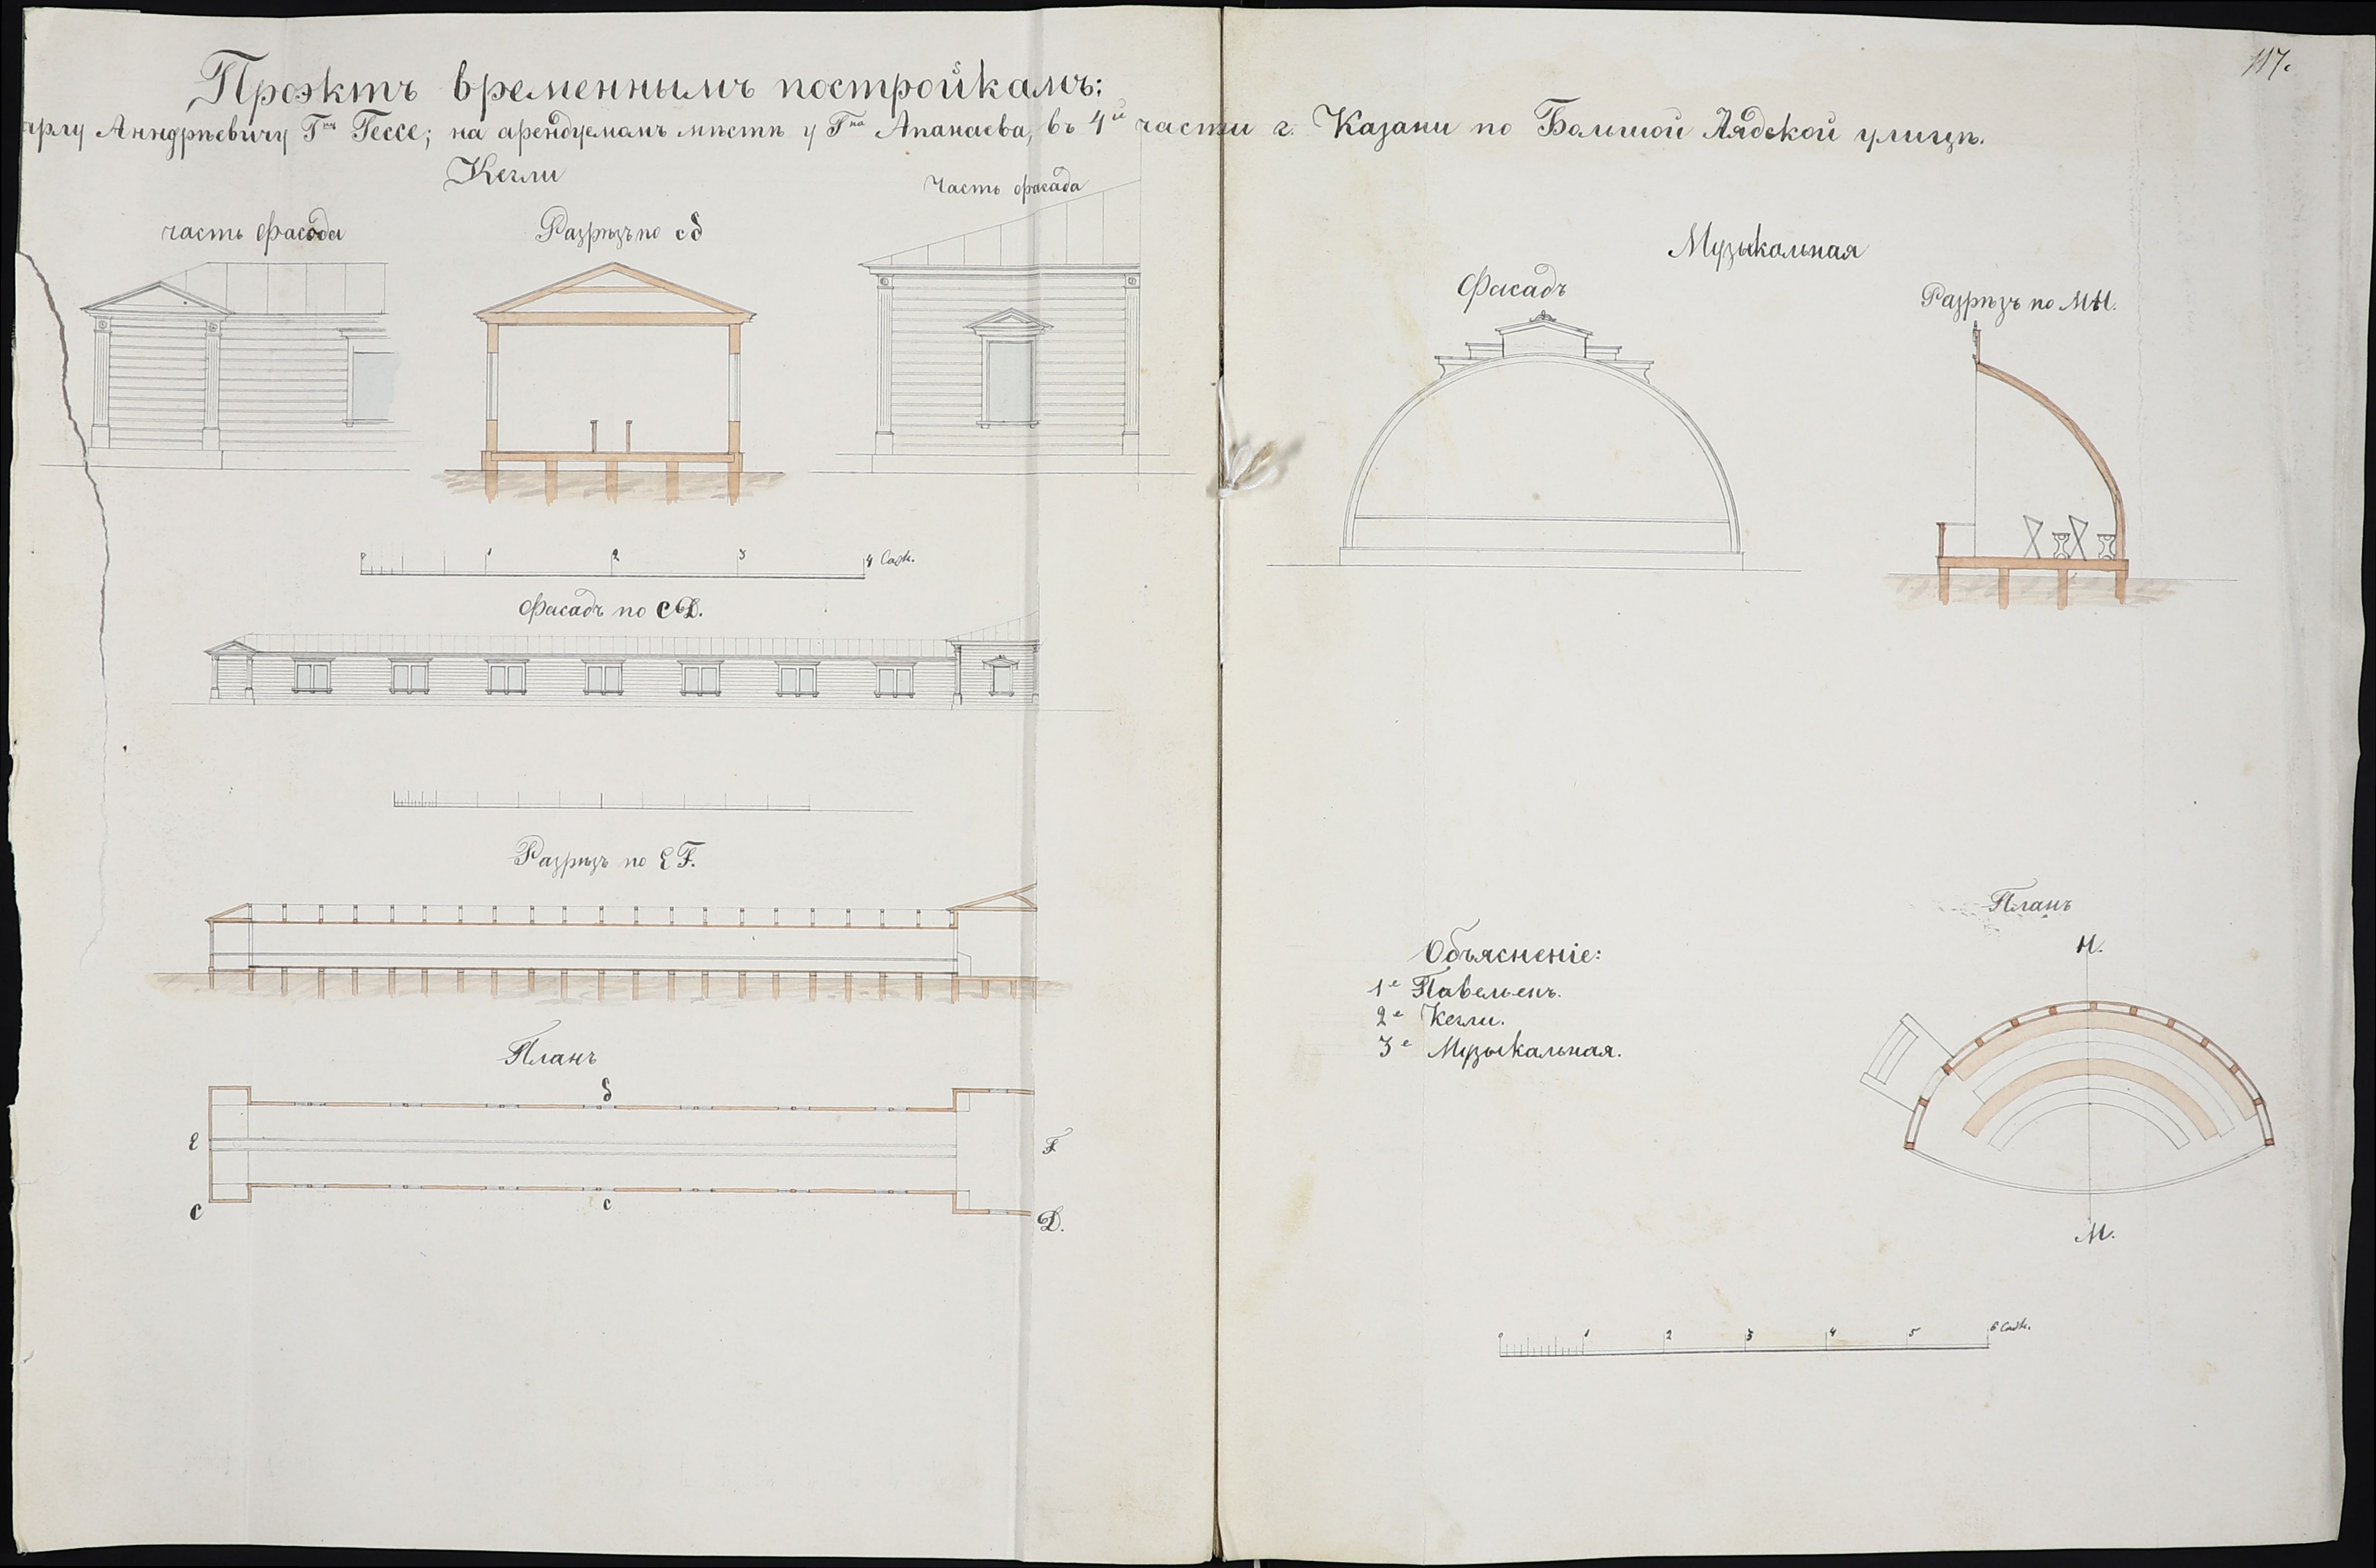 117.
Проэктъ временнымъ постройкамъ:
арлу Анндрѣевичу Гну Гессе; на арендуемомъ мѣстѣ у Гна Апанаева, въ 4й части г. Казани по Большой Лядской улицѣ.
Кегли
часть фасада
Разрѣзъ по сδ
Часть фасада
1 2 3 4 Саж.
Фасадъ по CD.
Разрѣзъ по EF.
Планъ
δ
E
F
C
c
D.
Музыкальная
Фасадъ
Разрѣзъ по МН.
Объясненіе:
1е Павельенъ.
2е Кегли.
3е Музыкальная.
Планъ
Н.
М.
0 1 2 3 4 5 6 Саж.